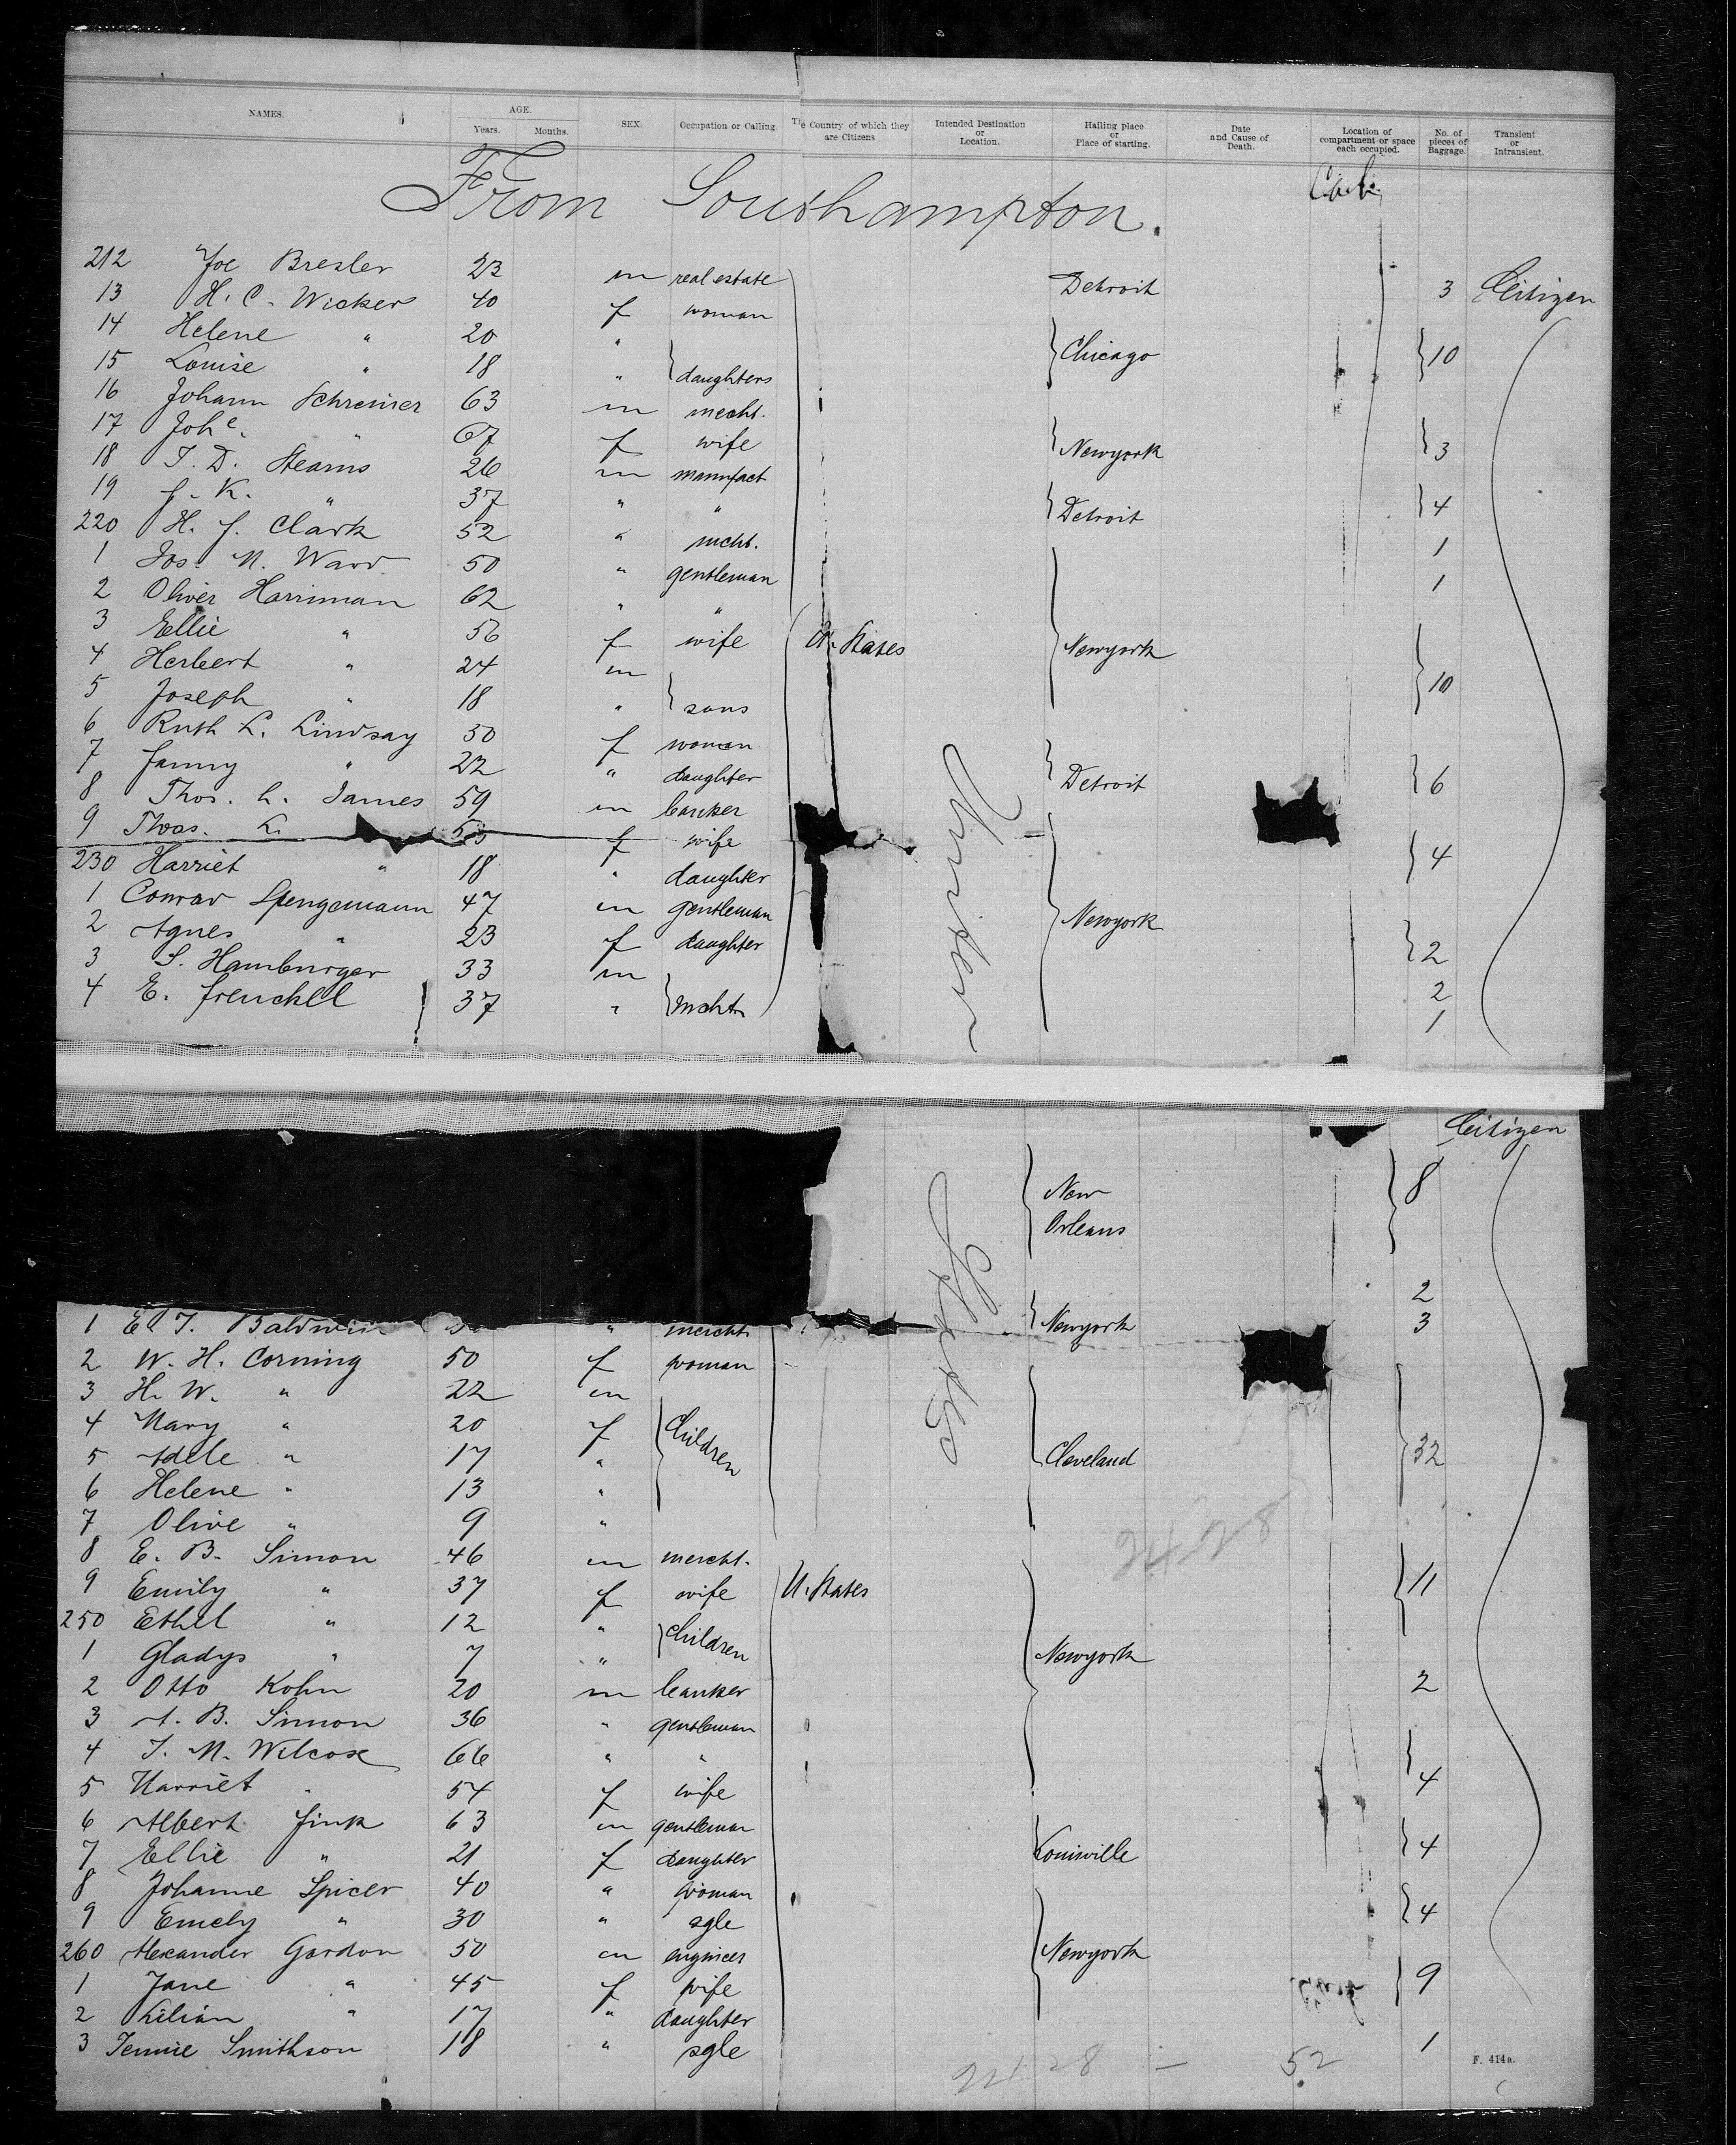 NAMES. AGE. Years. Months. SEX. Occupation or Calling. The Country of which they are Citizens Intended Destination or Location. Hailing place or Place of starting. Date and Cause of Death. Location of compartment or space each occupied. No. of pieces of Baggage. Transient or Intransient.
From Southampton. Cab.
212 Joe Bresler 23 m real estate Detroit 3 Citizen
13 H. C. Wicker 40 f woman
14 Helene " 20 " Chicago 10
15 Louise " 18 " daughters
16 Johann Schreiner 63 m mecht.
17 Joh e. " 67 f wife Newyork 3
18 T. D. Stearns 26 m manufact
19 f. K. " 37 " " Detroit 4
220 H. f. Clark 52 " mcht. 1
1 Jos. M. Ward 50 " gentleman 1
2 Oliver Harriman 62 " "
3 Ellie " 56 f wife U. States Newyork
4 Herbert " 24 m 10
5 Joseph " 18 " sons
6 Ruth L. Lindsay 50 f woman
7 Fanny " 22 " daughter Detroit 6
8 Thos. L. James 59 m banker
9 Thos. L. f wife 4
230 Harriet " 18 " daughter
1 Conrad Spengemann 47 m gentleman Newyork
2 Agnes " 23 f daughter 2
3 S. Hamburger 33 m 2
4 E. Frenckel 37 " mchts 1
Citizen
New Orleans 8
2
1 E. T. Baldwin " mercht. Newyork 3
2 W. H. Corning 50 f woman
3 H. W. " 22 m
4 Mary " 20 f Children
5 Adele " 17 " Cleveland 32
6 Helene " 13 "
7 Olive " 9 "
8 E. B. Simon 46 m mercht.
9 Emily " 37 f wife U. States 11
250 Ethel " 12 " Children
1 Gladys " 7 " Newyork
2 Otto Kohn 20 m banker 2
3 A. B. Simon 36 " gentleman
4 T. M. Wilcox 66 " "
5 Harriet " 54 f wife 4
6 Albert Fink 63 m gentleman
7 Ellie " 21 f daughter Louisville 4
8 Johanne Spicer 40 " woman
9 Emely " 30 " sgle 4
260 Alexander Gordon 50 m engineer Newyork
1 Jane " 45 f wife 9
2 Lilian " 17 " daughter
3 Jennie Smithson 18 " sgle 1
28 — 52
F. 414a.